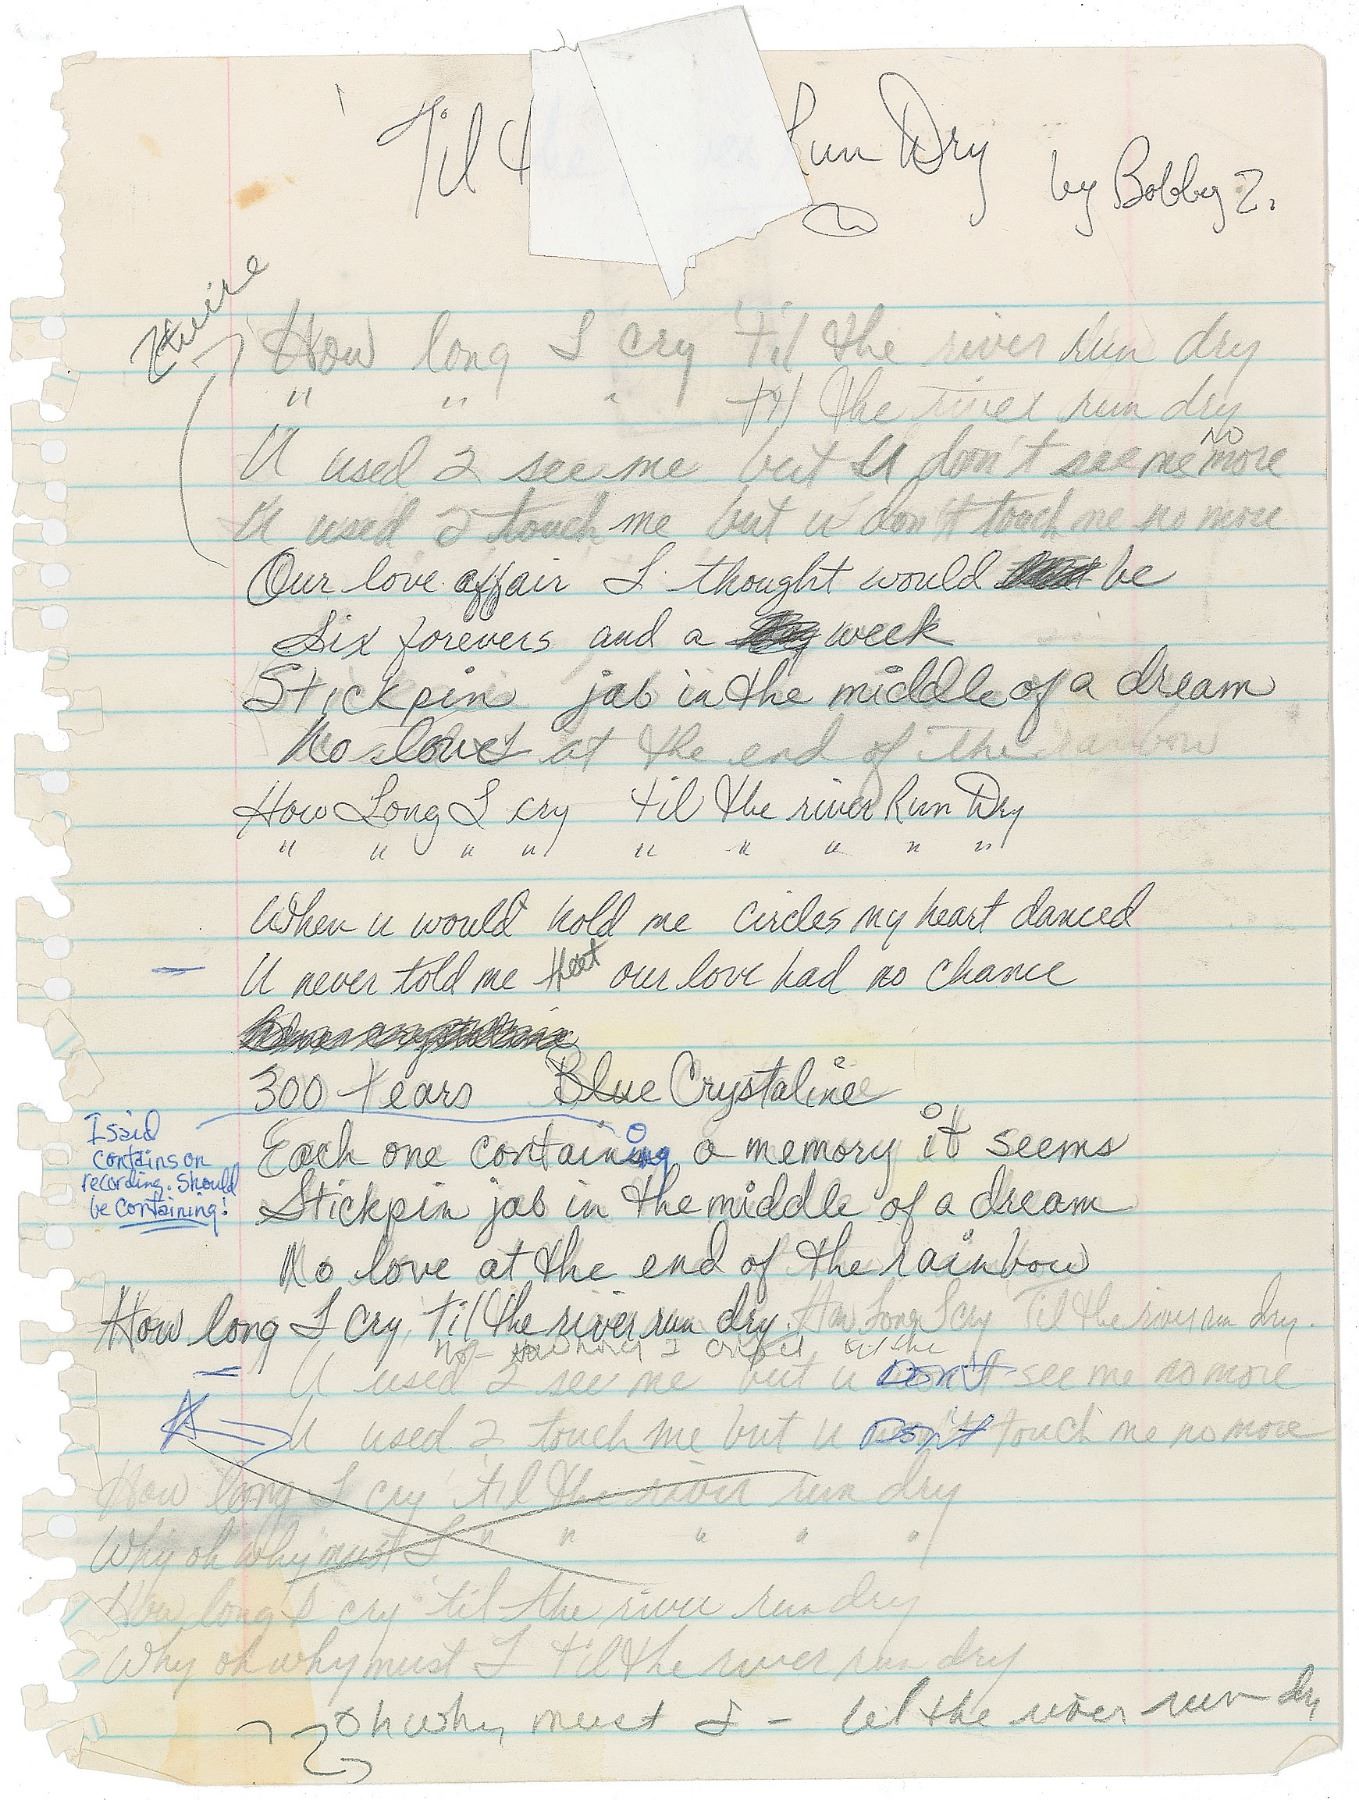 'Til the Run Dry by Bobby Z.
Twice
How long I cry 'til the river run dry
" " " til the river run dry
U used 2 see me but U don't see me no more
U used 2 touch me but u don't touch me no more
Our love affair I thought would be
Six forevers and a week
Stickpin jab in the middle of a dream
No love at the end of the rainbow
How Long I cry 'til the river Run Dry
" " " " " " " " "
When u would hold me circles my heart danced
U never told me that our love had no chance
300 tears Blue Crystaline
I said contains on recording. Should be containing!
Each one containing a memory it seems
Stickpin jab in the middle of a dream
No love at the end of the rainbow
How long I cry 'til the river run dry. How Long I cry 'Til the river run dry.
U used 2 see me but u Don't see me no more
U used 2 touch me but u Don't touch me no more
How long I cry 'til the river run dry
Why oh why must I " " " " "
How long I cry 'til the river run dry
Why oh why must I 'til the river run dry
Oh why must I - til the river run dry